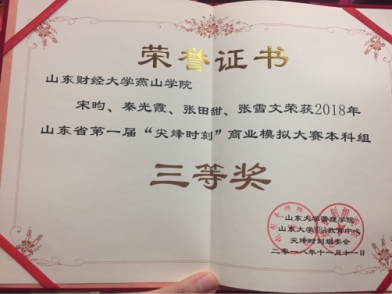 荣誉证书
山东财经大学燕山学院
宋昀、秦光霞、张田甜、张雪文荣获2018年
山东省第一届“尖烽时刻”商业模拟大赛本科组
三等奖
山东大学管理学院
山东大学教育中心
尖烽时刻组委会
二〇一八年十一月十一日